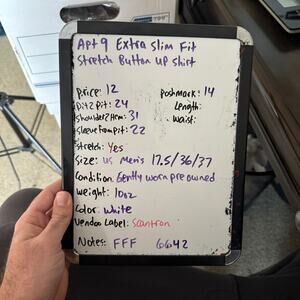 Apt 9 Extra Slim Fit
Stretch Button Up Shirt
Price: 12
Postmark: 14
Pit 2 Pit: 24
Length:
Shoulder 2 Hem: 31
Waist:
Sleeve from pit: 22
Stretch: Yes
Size: US Men's 17.5/36/37
Condition: Gently worn pre owned
Weight: 10oz
Color: White
Vendoo Label: Scantron
Notes: FFF 6642